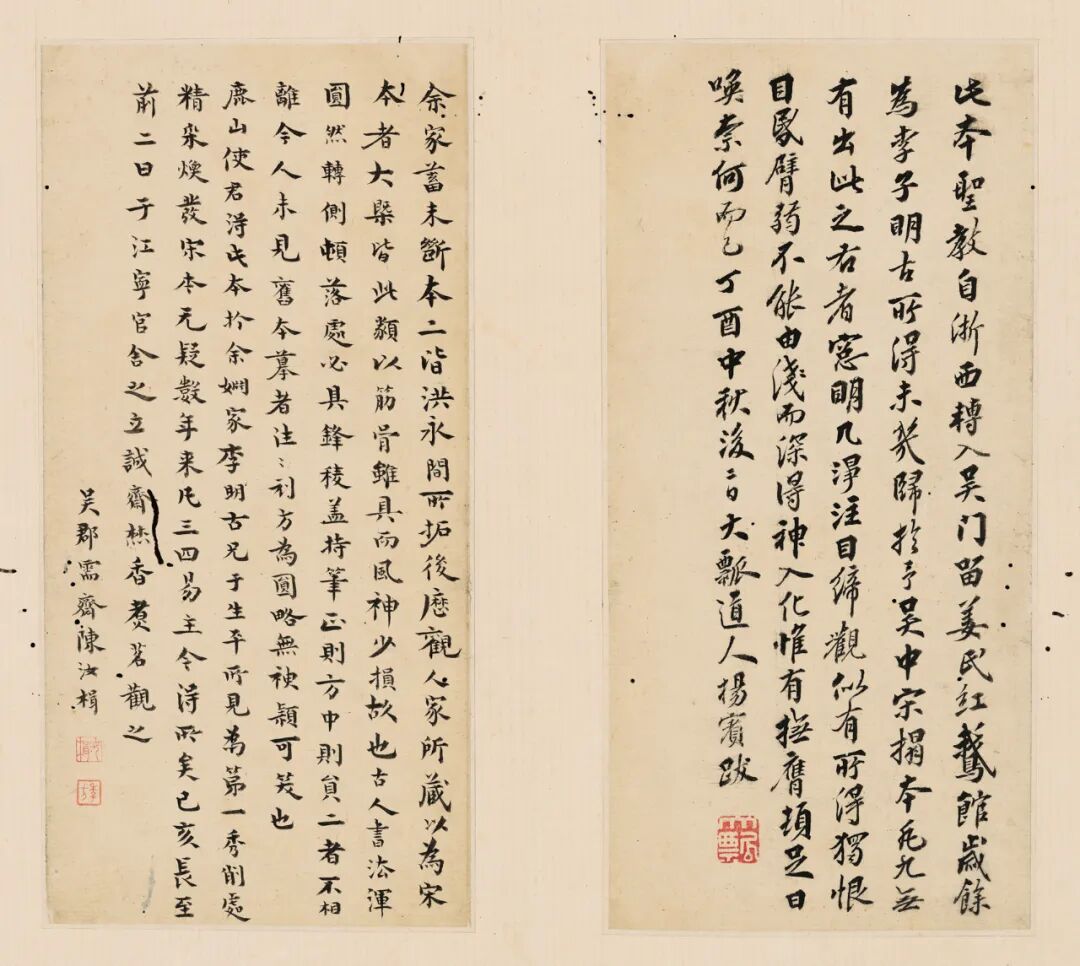 此本聖教自浙西轉入吴门留姜氏红鵞館歲餘
為李子明古所得未幾歸於予吴中宋搨本凡九无
有出此之右者窓明几淨注目締觀似有所得獨恨
目昬臂弱不能由淺而深得神入化惟有撫膺頓足日
喚柰何而已丁酉中秋後二日大瓢道人楊賓跋
余家蓄未斷本二皆洪永間所拓後歷觀人家所藏以為宋
本者大槩皆此類以筋骨雖具而風神少損故也古人書法渾
圓然轉側頓落處必具鋒稜盖持筆正則方中則員二者不相
離今人未見舊本摹者注〻刓方為圓略無神穎可笑也
鹿山使君得此本於余姻家李明古兄于生平所見為第一秀削處
精采煥發宋本无疑數年来凡三四易主今得所矣己亥長至
前二日于江寧官舍之立誠齋焚香煑茗觀之
吴郡需齋陳汝楫